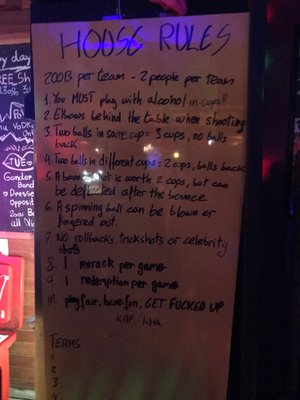 HOUSE RULES
200B per team - 2 people per team
1. You MUST play with alcohol in cups!!
2. Elbows behind the table when shooting
3. Two balls in same cup = 3 cups, no balls
back
4. Two balls in different cups = 2 cups, balls back
5. A bounce shot is worth 2 cups, but can
be deflected after the bounce.
6. A spinning ball can be blown or
fingered out.
7. NO rollbacks, trickshots or celebrity
shots
8. 1 rerack per game
9. 1 redemption per game
10. play fair, have fun, GET FUCKED UP
KAP KHA
TEAMS
1
2
3
4
day
FREE Sh
TUE
Gender
Band
Dresse
Opposi